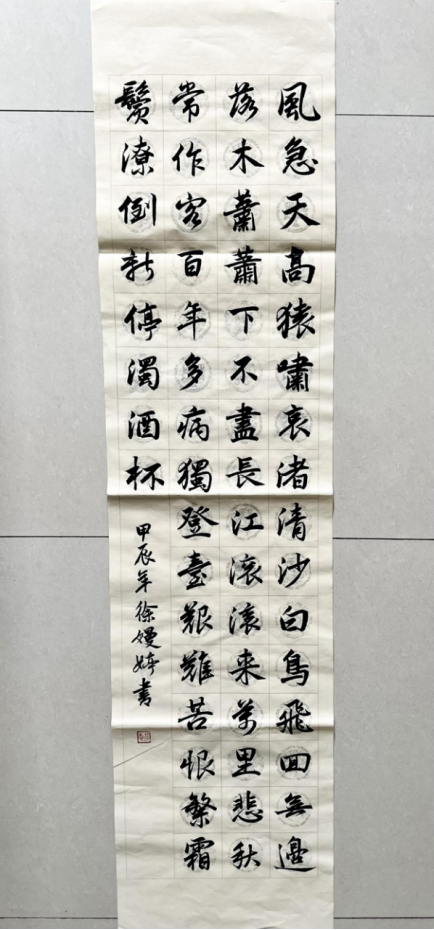 風急天高猿嘯哀渚清沙白鳥飛回無邊
落木蕭蕭下不盡長江滾滾来萬里悲秋
常作客百年多病獨登臺艱難苦恨繁霜
鬢潦倒新停濁酒杯
甲辰年徐嫚婍書